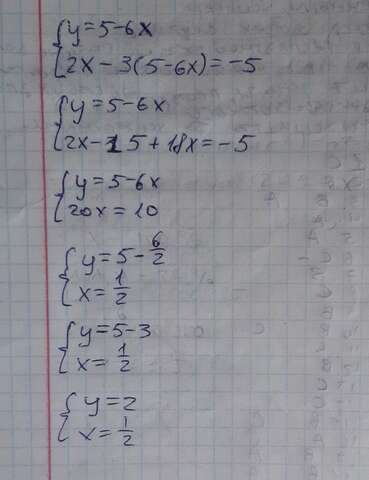 y=5-6x
2x-3(5-6x)=-5
y=5-6x
2x-15+18x=-5
y=5-6x
20x=10
y=5-6/2
x=1/2
y=5-3
x=1/2
y=2
x=1/2